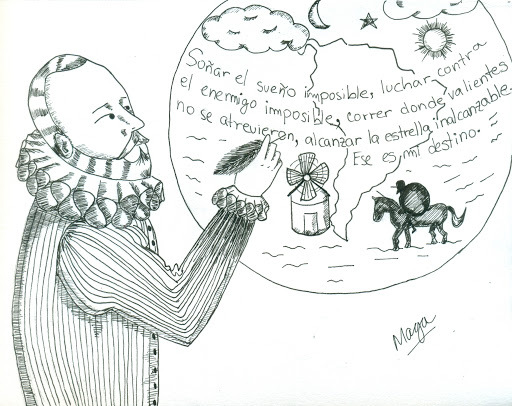 Soñar el sueño imposible, luchar contra
el enemigo imposible, correr donde valientes
no se atrevieron, alcanzar la estrella inalcanzable.
Ese es mi destino.
Maga